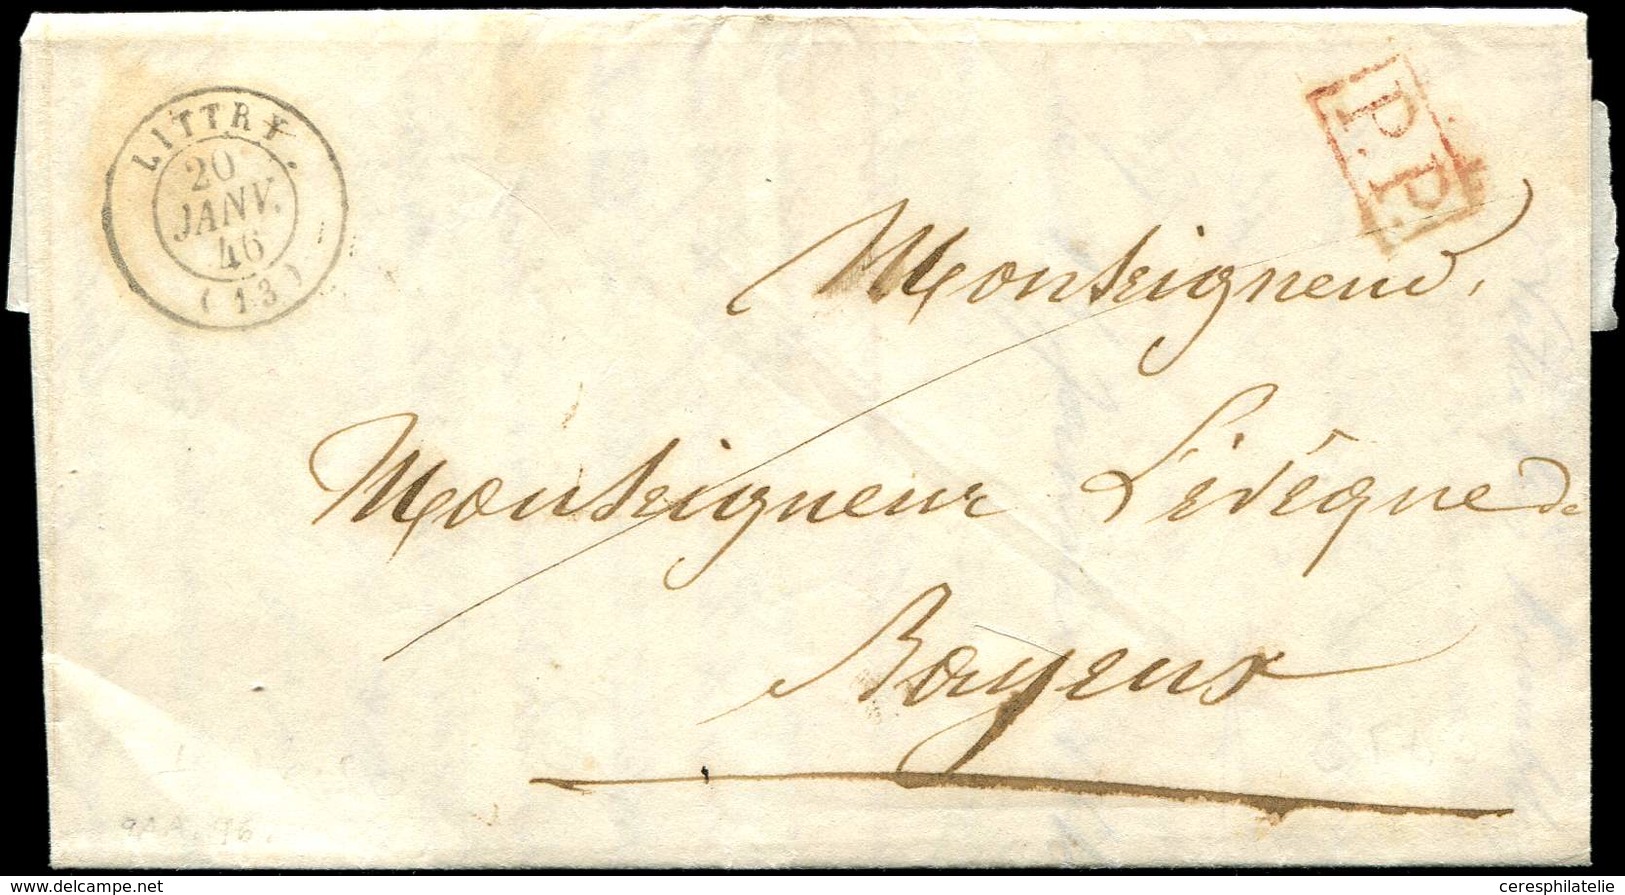 LITTRY.
20
JANV.
46
(13)
P.P.
Monseigneur,
Monseigneur L'évêque de
Bayeux
www.delcampe.net
ceresphilatelie